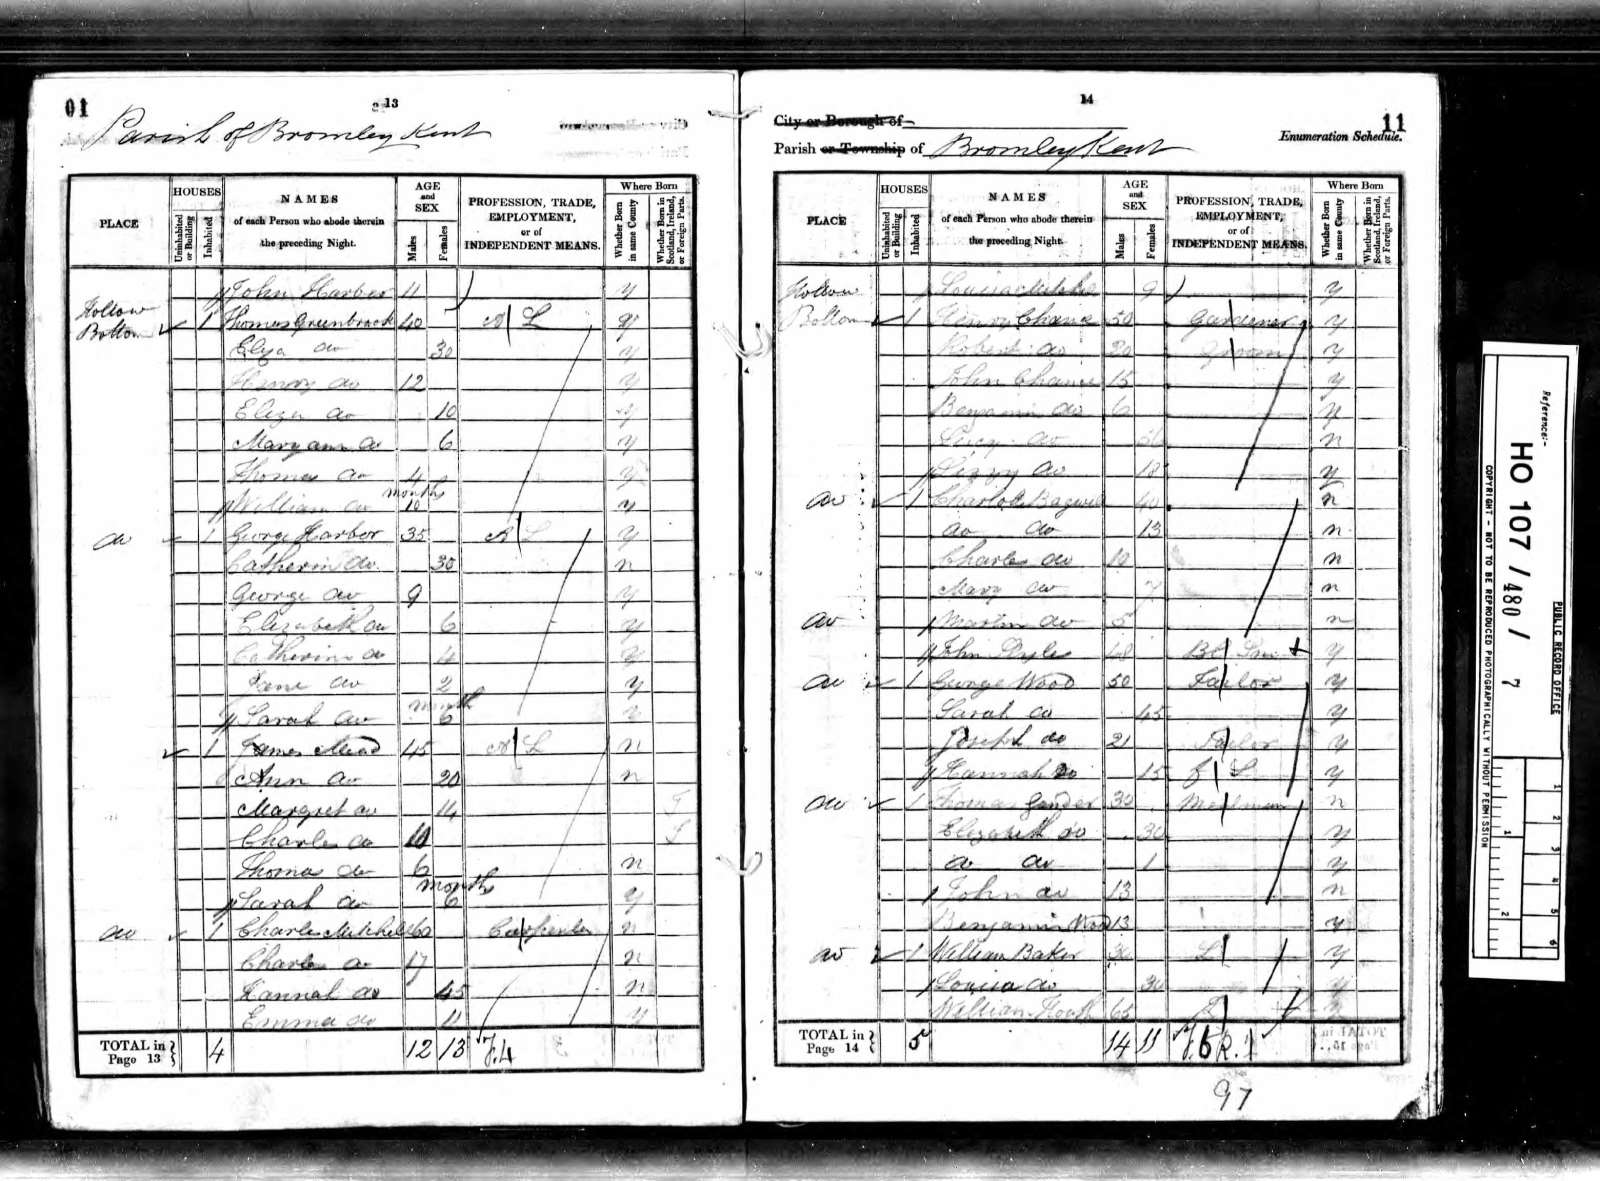 01
13
Parish of Bromley Kent
PLACE
HOUSES
Uninhabited or Building
Inhabited
NAMES
of each Person who abode therein
the preceding Night.
AGE
and
SEX
Males
Females
PROFESSION, TRADE,
EMPLOYMENT,
or of
INDEPENDENT MEANS.
Where Born
Whether Born in same County
Whether Born in Scotland, Ireland, or Foreign Parts.
John Harber 11 y
Hollow
Bottom 1 Thomas Greenbrook 40 A L y
Elyza do 30 y
Henry do 12 y
Eliza do 10 y
Maryann do 6 y
Thomas do 4 y
William do 10 months y
do 1 George Harbor 35 A L y
Catherin do 30 n
George do 9 y
Elizabeth do 6 y
Catherine do 4 y
Jane do 2 y
Sarah do 6 month y
1 James Mead 45 A L n
Ann do 20 n
Margret do 14
Charles do 10
Thomas do 6 n
Sarah do 6 months y
do 1 Charles Mitchell 60 Carpenter n
Charles do 17 n
Hannah do 45 n
Emma do 11 y
TOTAL in Page 13 4 12 13 F.4
14
City or Borough of
11
Enumeration Schedule.
Parish or Township of Bromley Kent
PLACE
HOUSES
Uninhabited or Building
Inhabited
NAMES
of each Person who abode therein
the preceding Night.
AGE
and
SEX
Males
Females
PROFESSION, TRADE,
EMPLOYMENT,
or of
INDEPENDENT MEANS.
Where Born
Whether Born in same County
Whether Born in Scotland, Ireland, or Foreign Parts.
Hollow Louisa 9 y
Bottom 1 Henry Chance 50 Gardener y
Robert do 20 Groom y
John Chance 15 y
Benjamin do 6 y
Lucy do n
Lizzy do 18 y
do 1 Charlott Bagwell 40 n
do do 13 n
Charles do 10 n
Mary do 7 n
do Martin do 5 n
John Styles 48 Bl Smi y
do 1 George Wood 50 Taelor y
Sarah do 45 y
Joseph do 21 Taelor y
Hannah do 15 F L y
do 1 Thomas Gander 30 Mealman n
Elizabeth do 30 y
do do 1 y
John do 13 n
Benjamin Wood 13 y
do 1 William Baker 30 L y
Louisa do 30 y
William 65
TOTAL in Page 14 5 14 11 F.6 R.1
97
Reference:-
HO 107 / 480 / 7
PUBLIC RECORD OFFICE
COPYRIGHT - NOT TO BE REPRODUCED PHOTOGRAPHICALLY WITHOUT PERMISSION
1
2
3
4
5
6
1
2